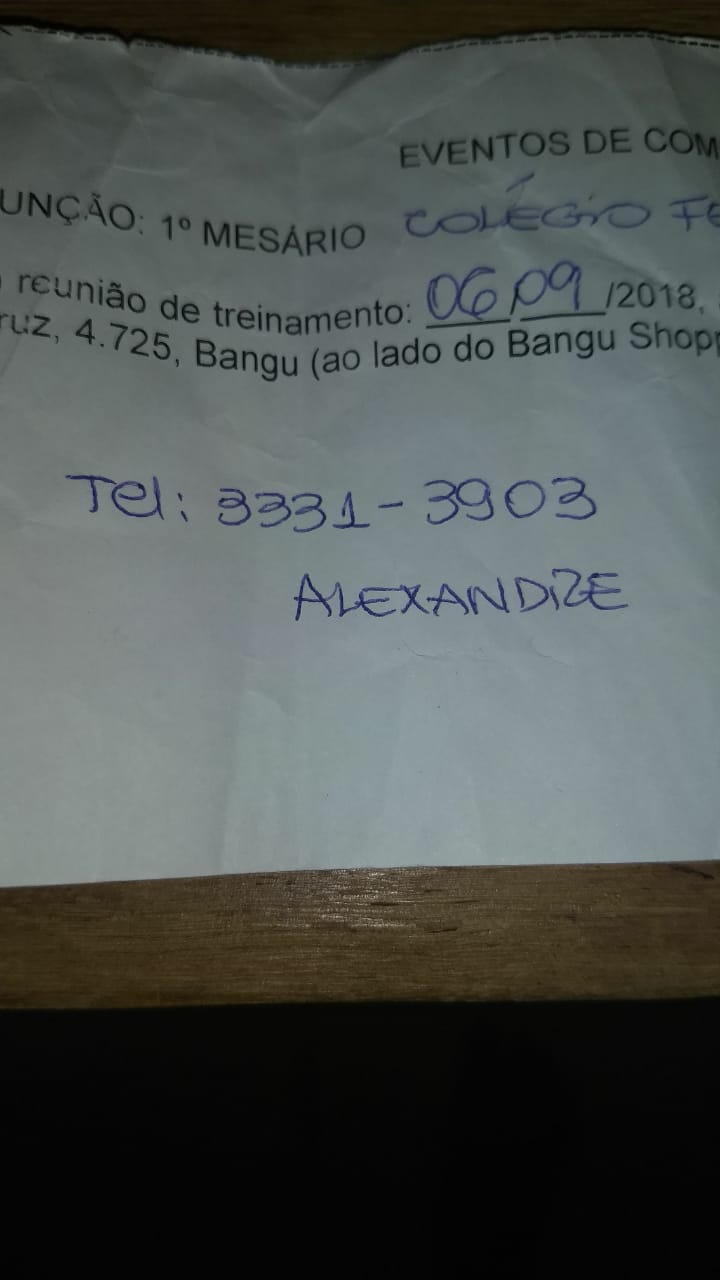 EVENTOS DE COM
UNÇÃO: 1º MESÁRIO COLÉGIO FE
reunião de treinamento: 06/09/2018,
ruz, 4.725, Bangu (ao lado do Bangu Shopp
Tel: 3331-3903
ALEXANDRE